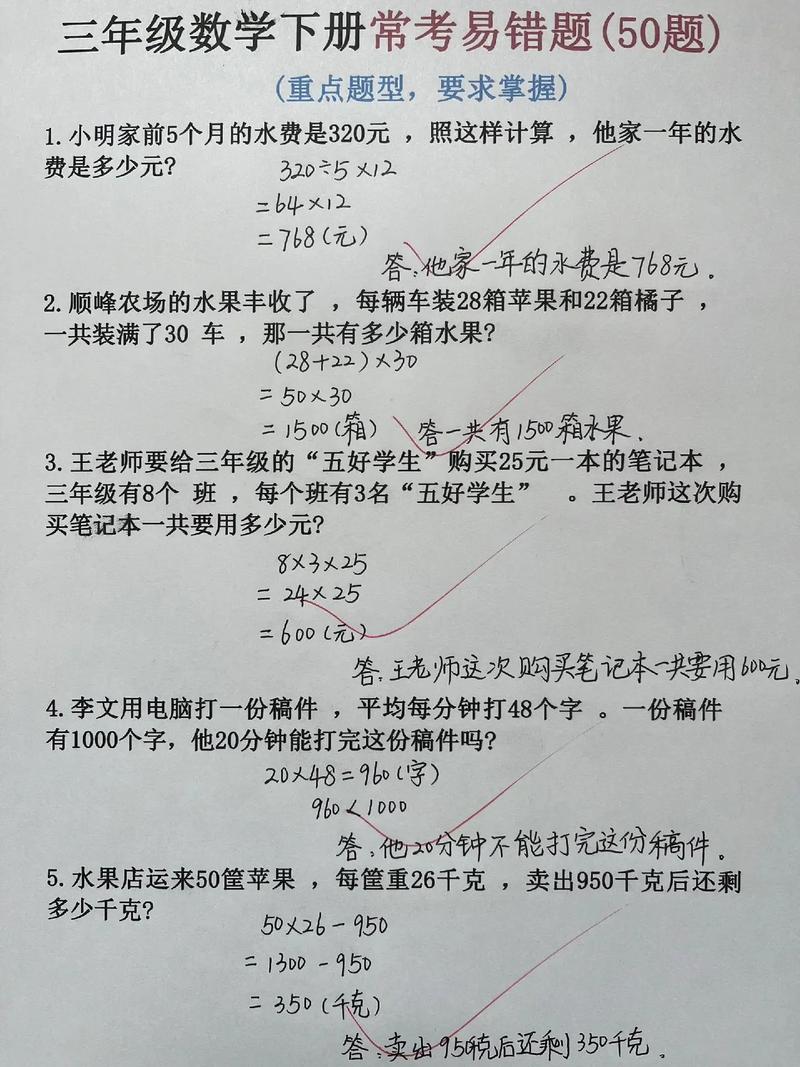 三年级数学下册常考易错题(50题)
(重点题型，要求掌握)
1.小明家前5个月的水费是320元 ，照这样计算 ，他家一年的水
费是多少元?
320÷5×12
=64×12
=768(元)
答:他家一年的水费是768元.
2.顺峰农场的水果丰收了 ，每辆车装28箱苹果和22箱橘子 ，
一共装满了30 车 ，那一共有多少箱水果?
(28+22)×30
=50×30
=1500(箱)
答一共有1500箱水果.
3.王老师要给三年级的“五好学生”购买25元一本的笔记本 ，
三年级有8个 班 ，每个班有3名“五好学生” 。王老师这次购
买笔记本一共要用多少元?
8×3×25
=24×25
=600(元)
答:王老师这次购买笔记本一共要用600元.
4.李文用电脑打一份稿件 ，平均每分钟打48个字 。一份稿件
有1000个字，他20分钟能打完这份稿件吗?
20×48=960(字)
960<1000
答:他20分钟不能打完这份稿件。
5.水果店运来50筐苹果 ，每筐重26千克 ，卖出950千克后还剩
多少千克?
50×26-950
=1300-950
=350(千克)
答:卖出950千克后还剩350千克.